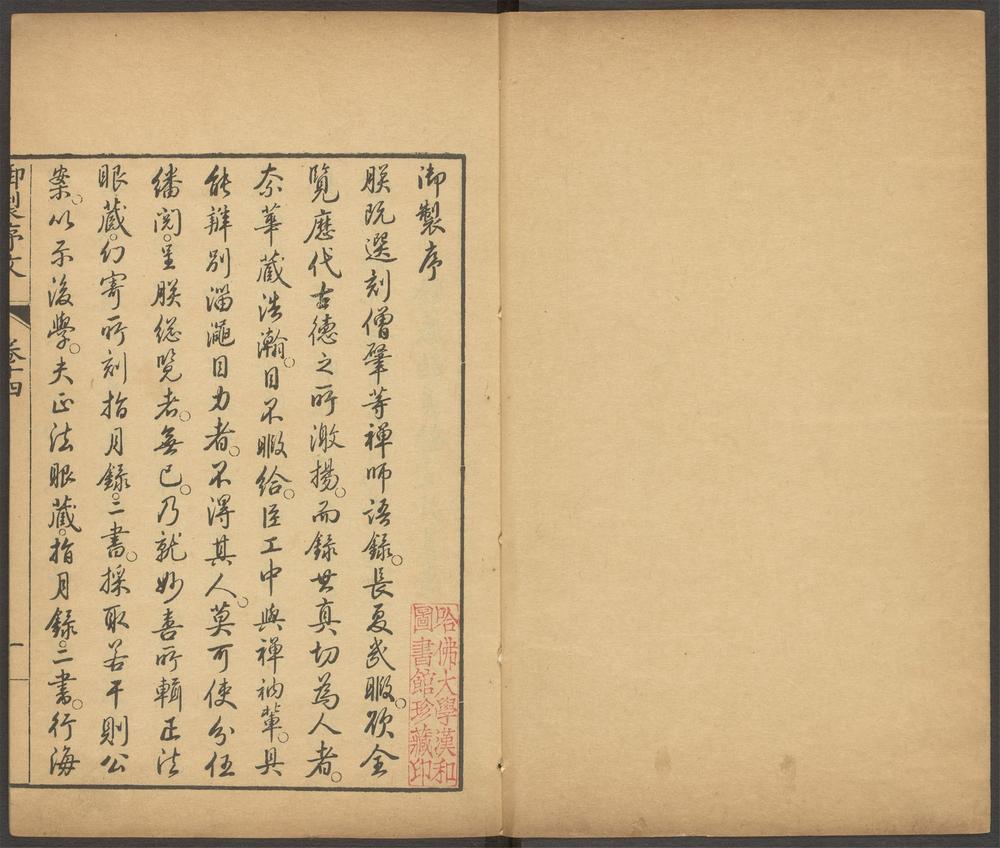 御製序
朕既選刻僧肇等禪師語錄。長夏幾暇。欲全
覽歷代古德之所激揚。而錄其真切為人者。
奈華藏浩瀚。日不暇給。臣工中與禪衲輩。具
能辨別淄澠目力者。不得其人。莫可使分任
繙閱。呈朕總覽者。無已。乃就妙喜所輯正法
眼藏。幻寄所刻指月錄。二書。採取若干則公
案。以示後學。夫正法眼藏。指月錄。二書。行海
御製序文
卷十四
一
哈佛大學漢和
圖書館珍藏印